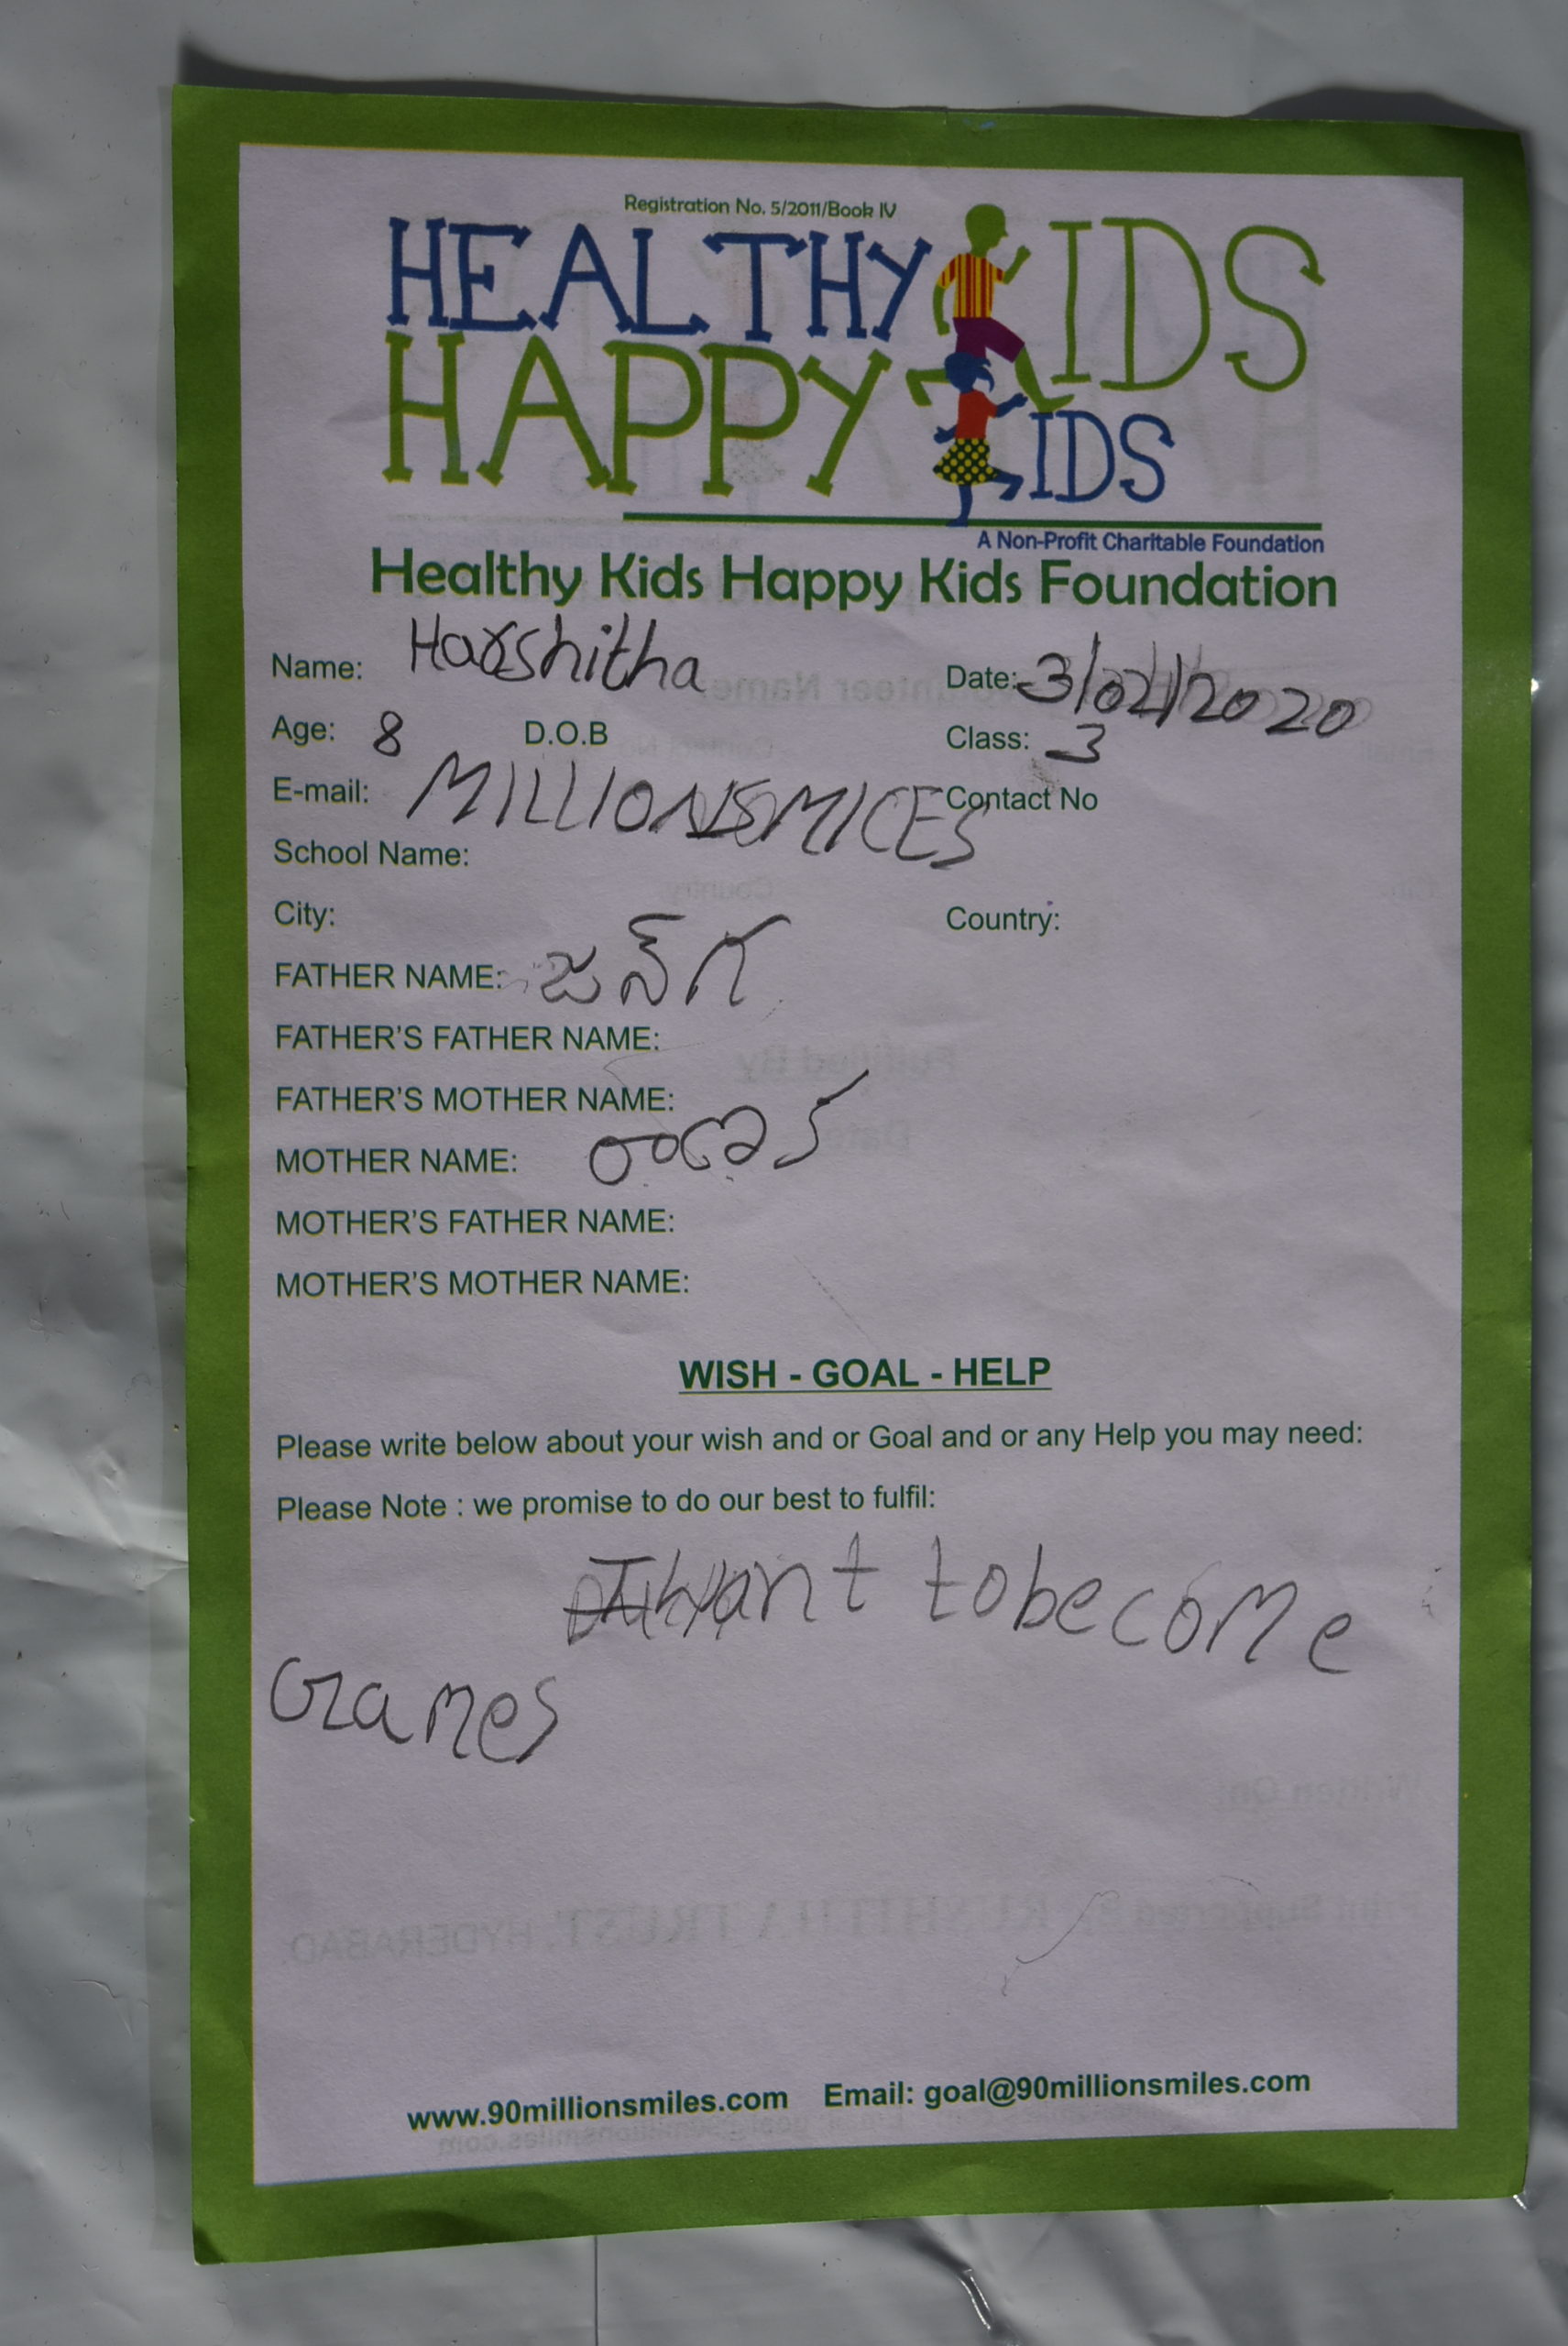 Registration No. 5/2011/Book IV
HEALTHY KIDS
HAPPY KIDS
A Non-Profit Charitable Foundation
Healthy Kids Happy Kids Foundation
Name: Harshitha Date: 3/02/2020
Age: 8 D.O.B Class: 3
E-mail: MILLIONSMICES Contact No
School Name:
City: Country:
FATHER NAME:
FATHER'S FATHER NAME:
FATHER'S MOTHER NAME:
MOTHER NAME:
MOTHER'S FATHER NAME:
MOTHER'S MOTHER NAME:
WISH - GOAL - HELP
Please write below about your wish and or Goal and or any Help you may need:
Please Note : we promise to do our best to fulfil:
I want to become
Games
www.90millionsmiles.com Email: goal@90millionsmiles.com